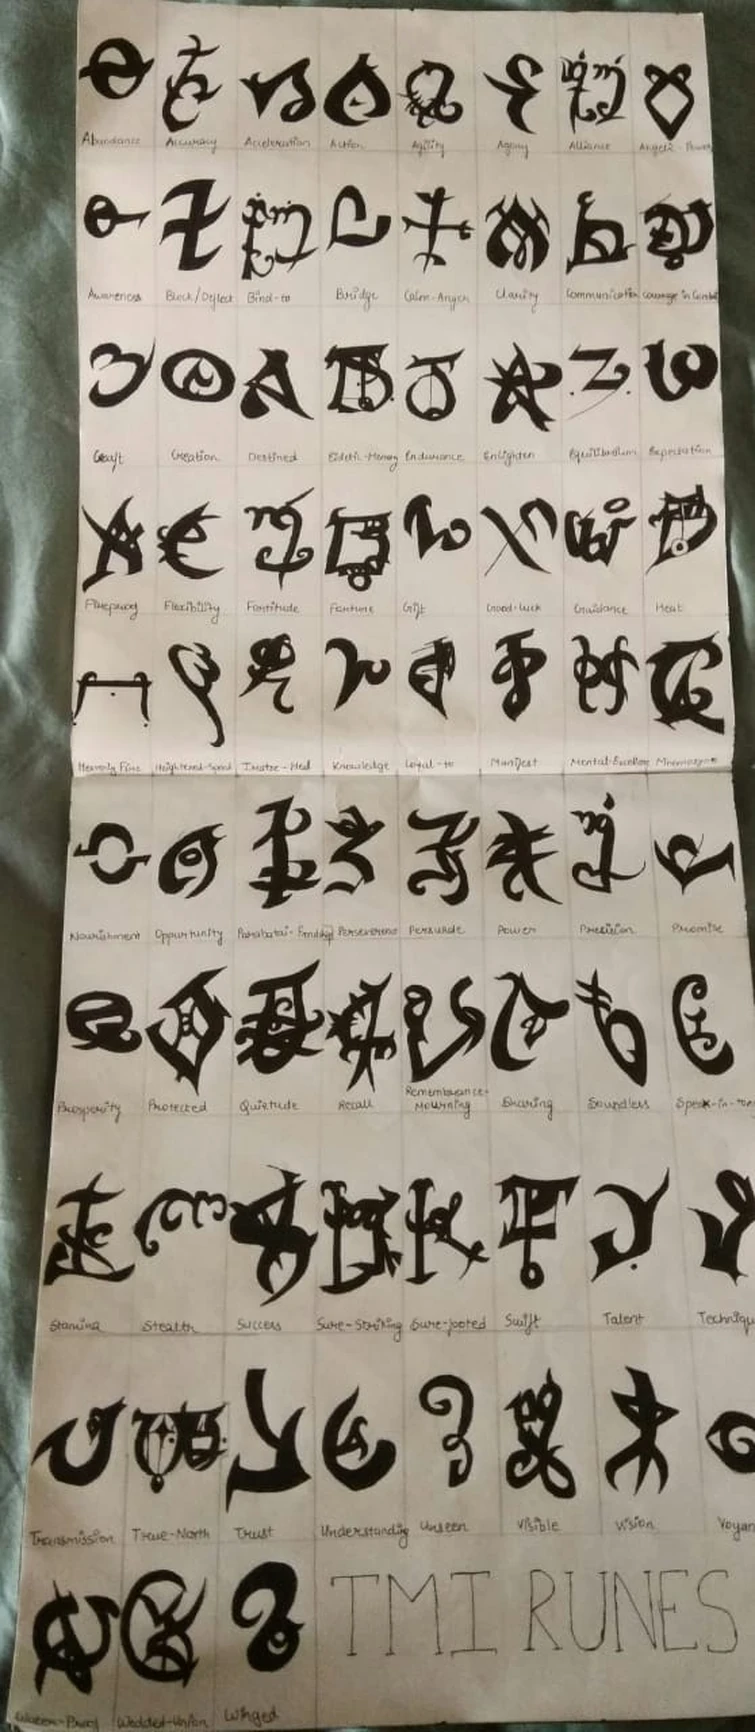 Abundance Accuracy Acceleration Action Agility Agony Alliance Angelic-Power
Awareness Block/Deflect Bind-to Bridge Calm-Anger Clarity Communication Courage in Combat
Craft Creation Destined Eidetic-Memory Endurance Enlighten Equilibrium Expectation
Fireproof Flexibility Fortitude Fortune Gift Good-luck Guidance Heat
Heavenly Fire Heightened-Speed Knowledge Loyal-to Manifest Mental-Excellence Mnemosyne
Nourishment Oppurtunity Persuade Power Precision Promise
Prosperity Protected Quietude Recall Remembrance-
Mourning Sharing Soundless Speak-in-ton
Stamina Stealth Success Sure-Striking Sure-footed Swift Talent Techniqu
Transmission True-North Trust Understanding Unseen Visible Vision Voyan
Water-Proof Wedded-Union Winged TMI RUNES